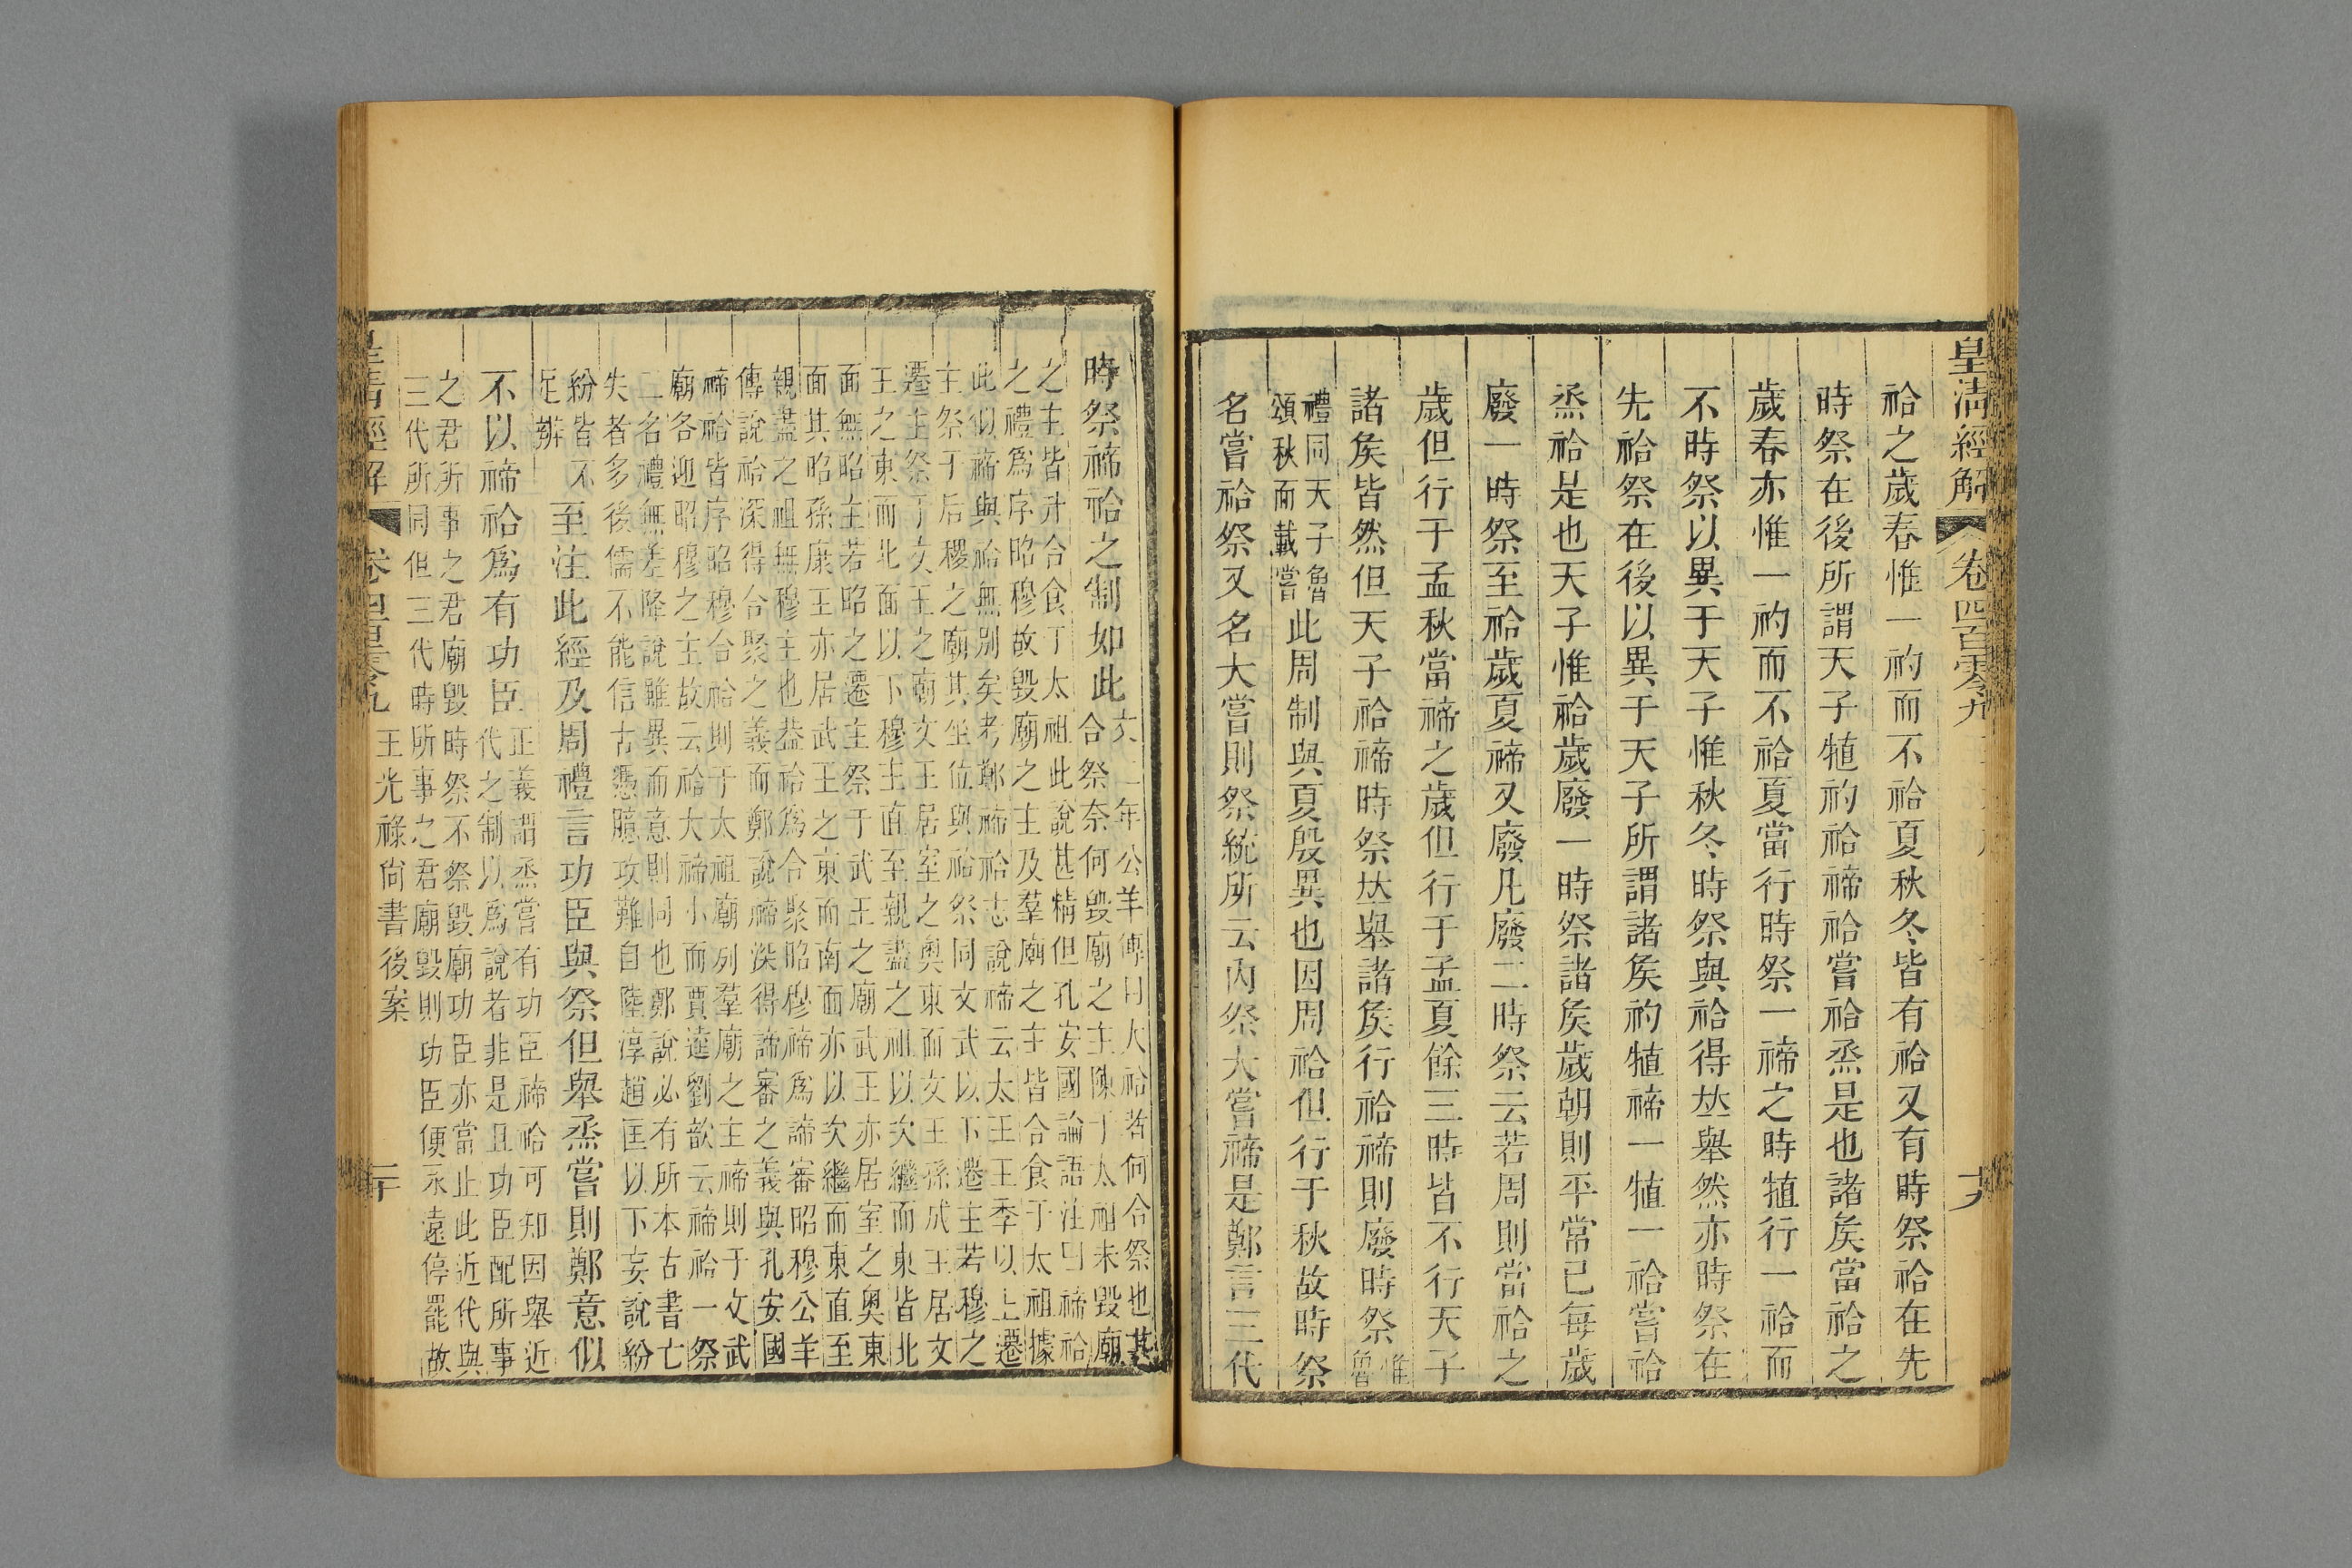 皇清經解
卷四百零九
祫之歲春惟一礿而不祫夏秋冬皆有祫又有時祭祫在先
時祭在後所謂天子犆礿祫禘祫嘗祫烝是也諸矦當祫之
歲春亦惟一礿而不祫夏當行時祭一禘之時犆行一祫而
不時祭以異于天子惟秋冬時祭與祫得竝舉然亦時祭在
先祫祭在後以異于天子所謂諸矦礿犆禘一犆一祫嘗祫
烝祫是也天子惟祫歲廢一時祭諸矦歲朝則平常已每歲
廢一時祭至祫歲夏禘又廢凡廢二時祭云若周則當祫之
歲但行于孟秋當禘之歲但行于孟夏餘三時皆不行天子
諸矦皆然但天子祫禘時祭竝舉諸矦行祫禘則廢時祭惟魯
禮同天子魯
頌秋而載嘗此周制與夏殷異也因周祫但行于秋故時祭
名嘗祫祭又名大嘗則祭統所云內祭大嘗禘是鄭言三代
時祭禘祫之制如此
文二年公羊傳曰大祫者何合祭也其
合祭奈何毀廟之主陳于太祖未毀廟
之主皆升合食于太祖此說甚精但孔安國論語注曰禘祫
之禮爲序昭穆故毀廟之主及羣廟之主皆合食于太祖據
此似禘與祫無別矣考鄭禘祫志說禘云太王王季以上遷
主祭于后稷之廟其坐位與祫祭同文武以下遷主若穆之
遷主祭于文王之廟文王居室之奧東面文王孫成王居文
王之東而北面以下穆主直至親盡之祖以次繼而東皆北
面無昭主若昭之遷主祭于武王之廟武王亦居室之奧東
面其昭孫康王亦居武王之東而南面亦以次繼而東直至
親盡之祖無穆主也葢祫爲合聚昭穆禘爲諦審昭穆公羊
傳說祫深得合聚之義而鄭說禘深得諦審之義與孔安國
禘祫皆序昭穆合祫則于太祖廟列羣廟之主禘則于文武
廟各迎昭穆之主故云祫大禘小而賈逵劉歆云禘祫一祭
二名禮無差降說雖異而意則同也鄭說必有所本古書亡
失者多後儒不能信古憑臆攻難自陸淳趙匡以下妄說紛
紛皆不
足辨
至注此經及周禮言功臣與祭但舉烝嘗則鄭意似
不以禘祫爲有功臣
正義謂烝嘗有功臣禘祫可知因舉近
代之制以爲說者非是且功臣配所事
之君所事之君廟毀時祭不祭毀廟功臣亦當止此近代與
三代所同但三代時所事之君廟毀則功臣便永遠停罷故
王光祿尙書後案